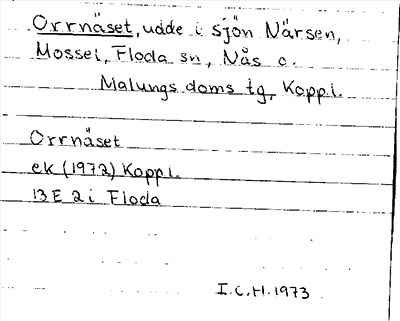 Orrnäset, udde i sjön Närsen,
Mossel, Floda sn, Nås o.
Malungs doms tg, Kopp.l.
Orrnäset
ek (1972) Kopp.l.
13 E 2 i Floda
I.C.H. 1973